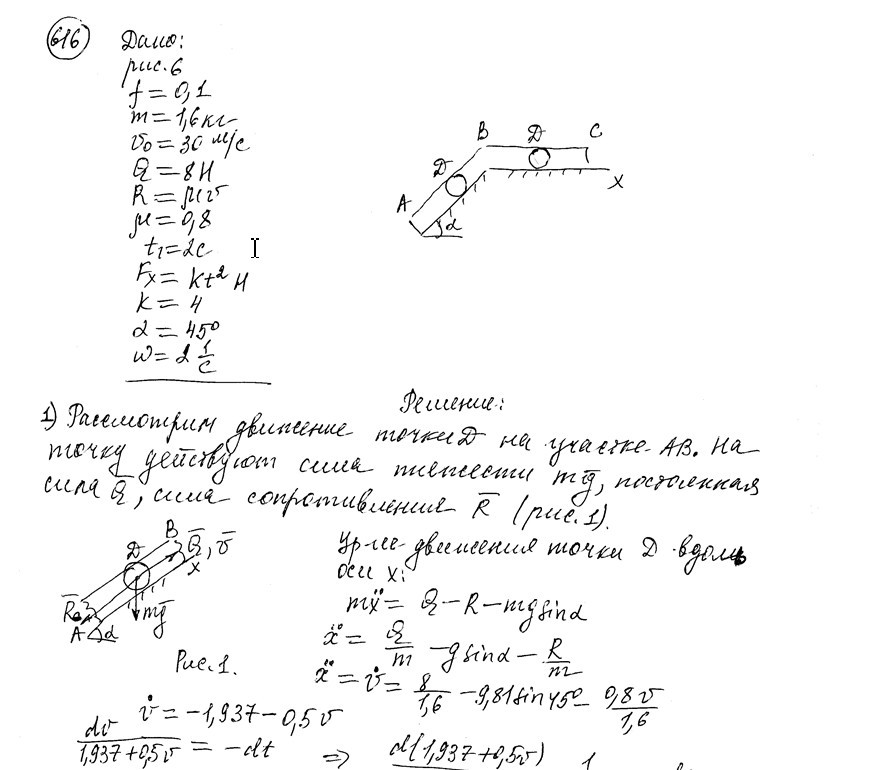 616 Дано:
рис. 6
f = 0,1
m = 1,6 кг
v₀ = 30 м/с
Q = 8 Н
R = μv
μ = 0,8
t₁ = 2c
Fₓ = kt² Н
k = 4
α = 45°
ω = 2 1/c
A D B D C X α
Решение:
1) Рассмотрим движение точки D на участке AB. На
точку действуют сила тяжести mg̅, постоянная
сила Q̅, сила сопротивления R̅ (рис. 1).
Ур-ие движения точки D вдоль
оси x:
B D Q̅, v̅ x R̅ mg̅ A α
Рис. 1.
mẍ = Q − R − mg sinα
ẍ = Q/m − g sinα − R/m
ẍ = v̇ = 8/1,6 − 9,81 sin 45° − 0,8v/1,6
v̇ = −1,937 − 0,5v
dv/(1,937 + 0,5v) = −dt ⇒ d(1,937 + 0,5v)